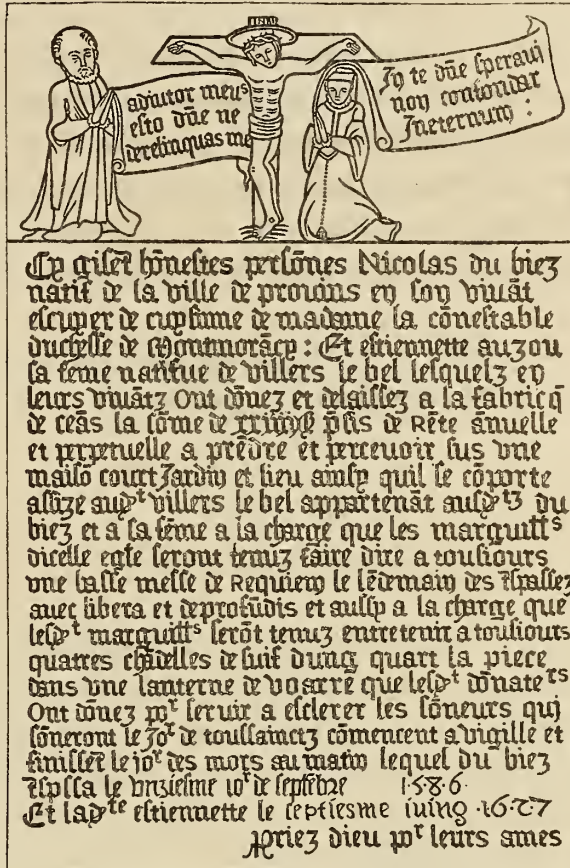 INRI
adiutor meus
esto dñe ne
derelinquas me
In te dñe speraui
non confondar
Ineternum :
Cy gisẽt hõnestes persõnes Nicolas du biez
natif de la ville de prouins en son viuãt
escuyer de cuysinne de madame la cõnestable
duchesse de Montmorãcy : Et estiennette auzou
sa fẽme natifue de villers le bel lesquelz en
leurs viuãtz Ont dõnez et delaissez a la fabricq̃
de ceãs la sõme de p̃sis de Rẽte ãnuelle
et perpetuelle a prẽdre et perceuoir sus vne
maisõ court Jardin et lieu ainsy quil se cõporte
assize ausdt villers le bel appartenãt ausdtz du
biez et a sa fẽme a la charge que les marguilts
dicelle egse seront tenuz faire dire a tousiours
vne basse messe de Requiem le lẽdemain des tspassez
auec libera et deprofũdis et aussy a la charge que
lesdt marguilts serõt tenuz entretenir a tousiours
quatres chãdelles de suif dung quart la piece
dans vne lanterne de voarre que lesdt dõnaters
Ont dõnez por seruir a esclerer les sõneurs qui
sõneront le Jor de toussainctz cõmencent a vigille et
finissẽt le jor des mors au matin lequel du biez
tspssa le vnziesme jor de septẽbre 1586
Et ladte estiennette le septiesme iuing 1627
Priez dieu por leurs ames